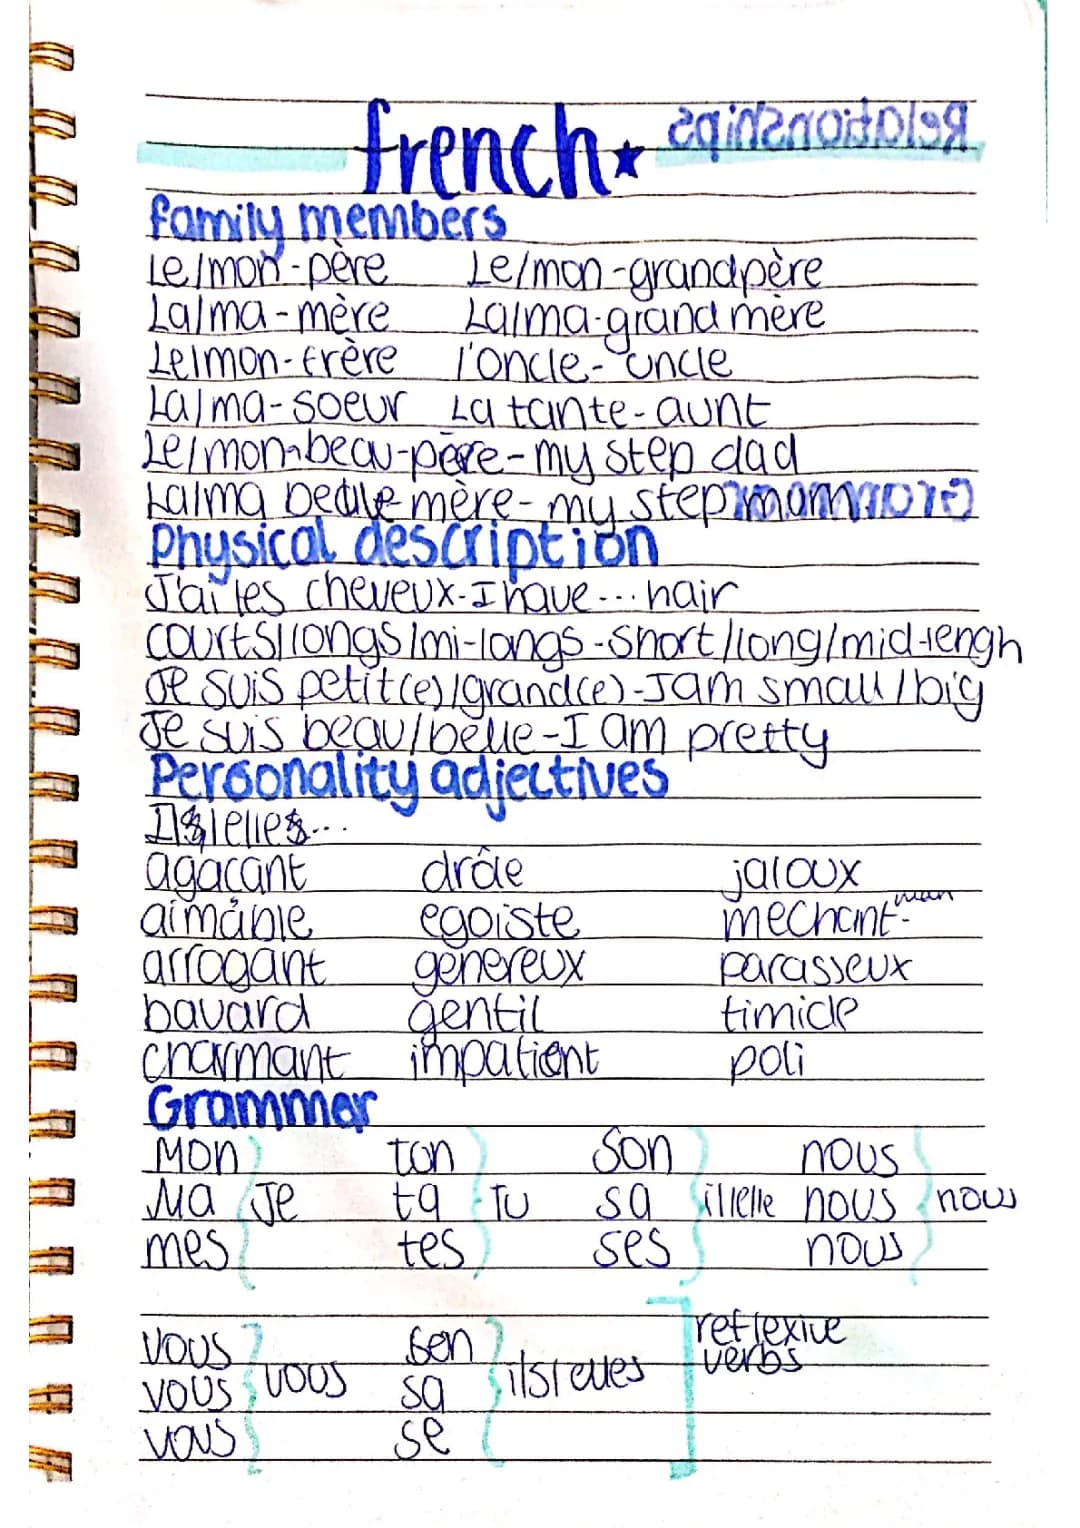 french★ Relationships
family members
Le/mon-père Le/mon-grandpère
La/ma-mère La/ma-grand mère
Le/mon-frère l'oncle-uncle
La/ma-soeur La tante-aunt
Le/mon-beau-père-my step dad
La/ma belle-mère-my step mom
Physical description
J'ai les cheveux-I have...hair
courts/longs/mi-longs-short/long/mid-lengh
Je suis petit(e)/grand(e)-I am small/big
Je suis beau/belle-I am pretty
Personality adjectives
Il/elle...
agacant drôle jaloux
aimable egoiste mechant-mean
arrogant genereux parasseux
bavard gentil timide
charmant impatient poli
Grammer
Mon ton son nous
Ma Je ta Tu sa il/elle nous nous
mes tes ses nous
vous sen reflexive
vous vous sa ils/elles verbs
vous se